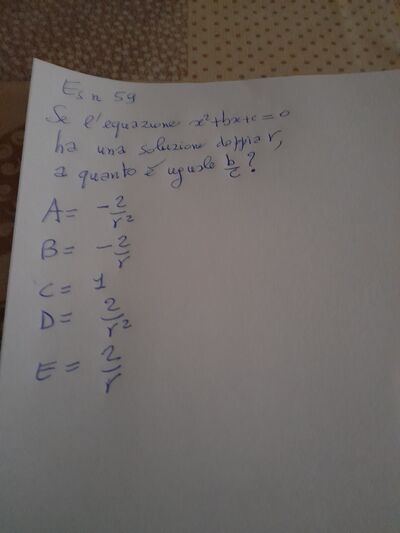 Es n 59
Se l'equazione x²+bx+c=0
ha una soluzione doppia r,
a quanto è uguale b/c?
A= -2/r²
B= -2/r
C= 1
D= 2/r²
E= 2/r